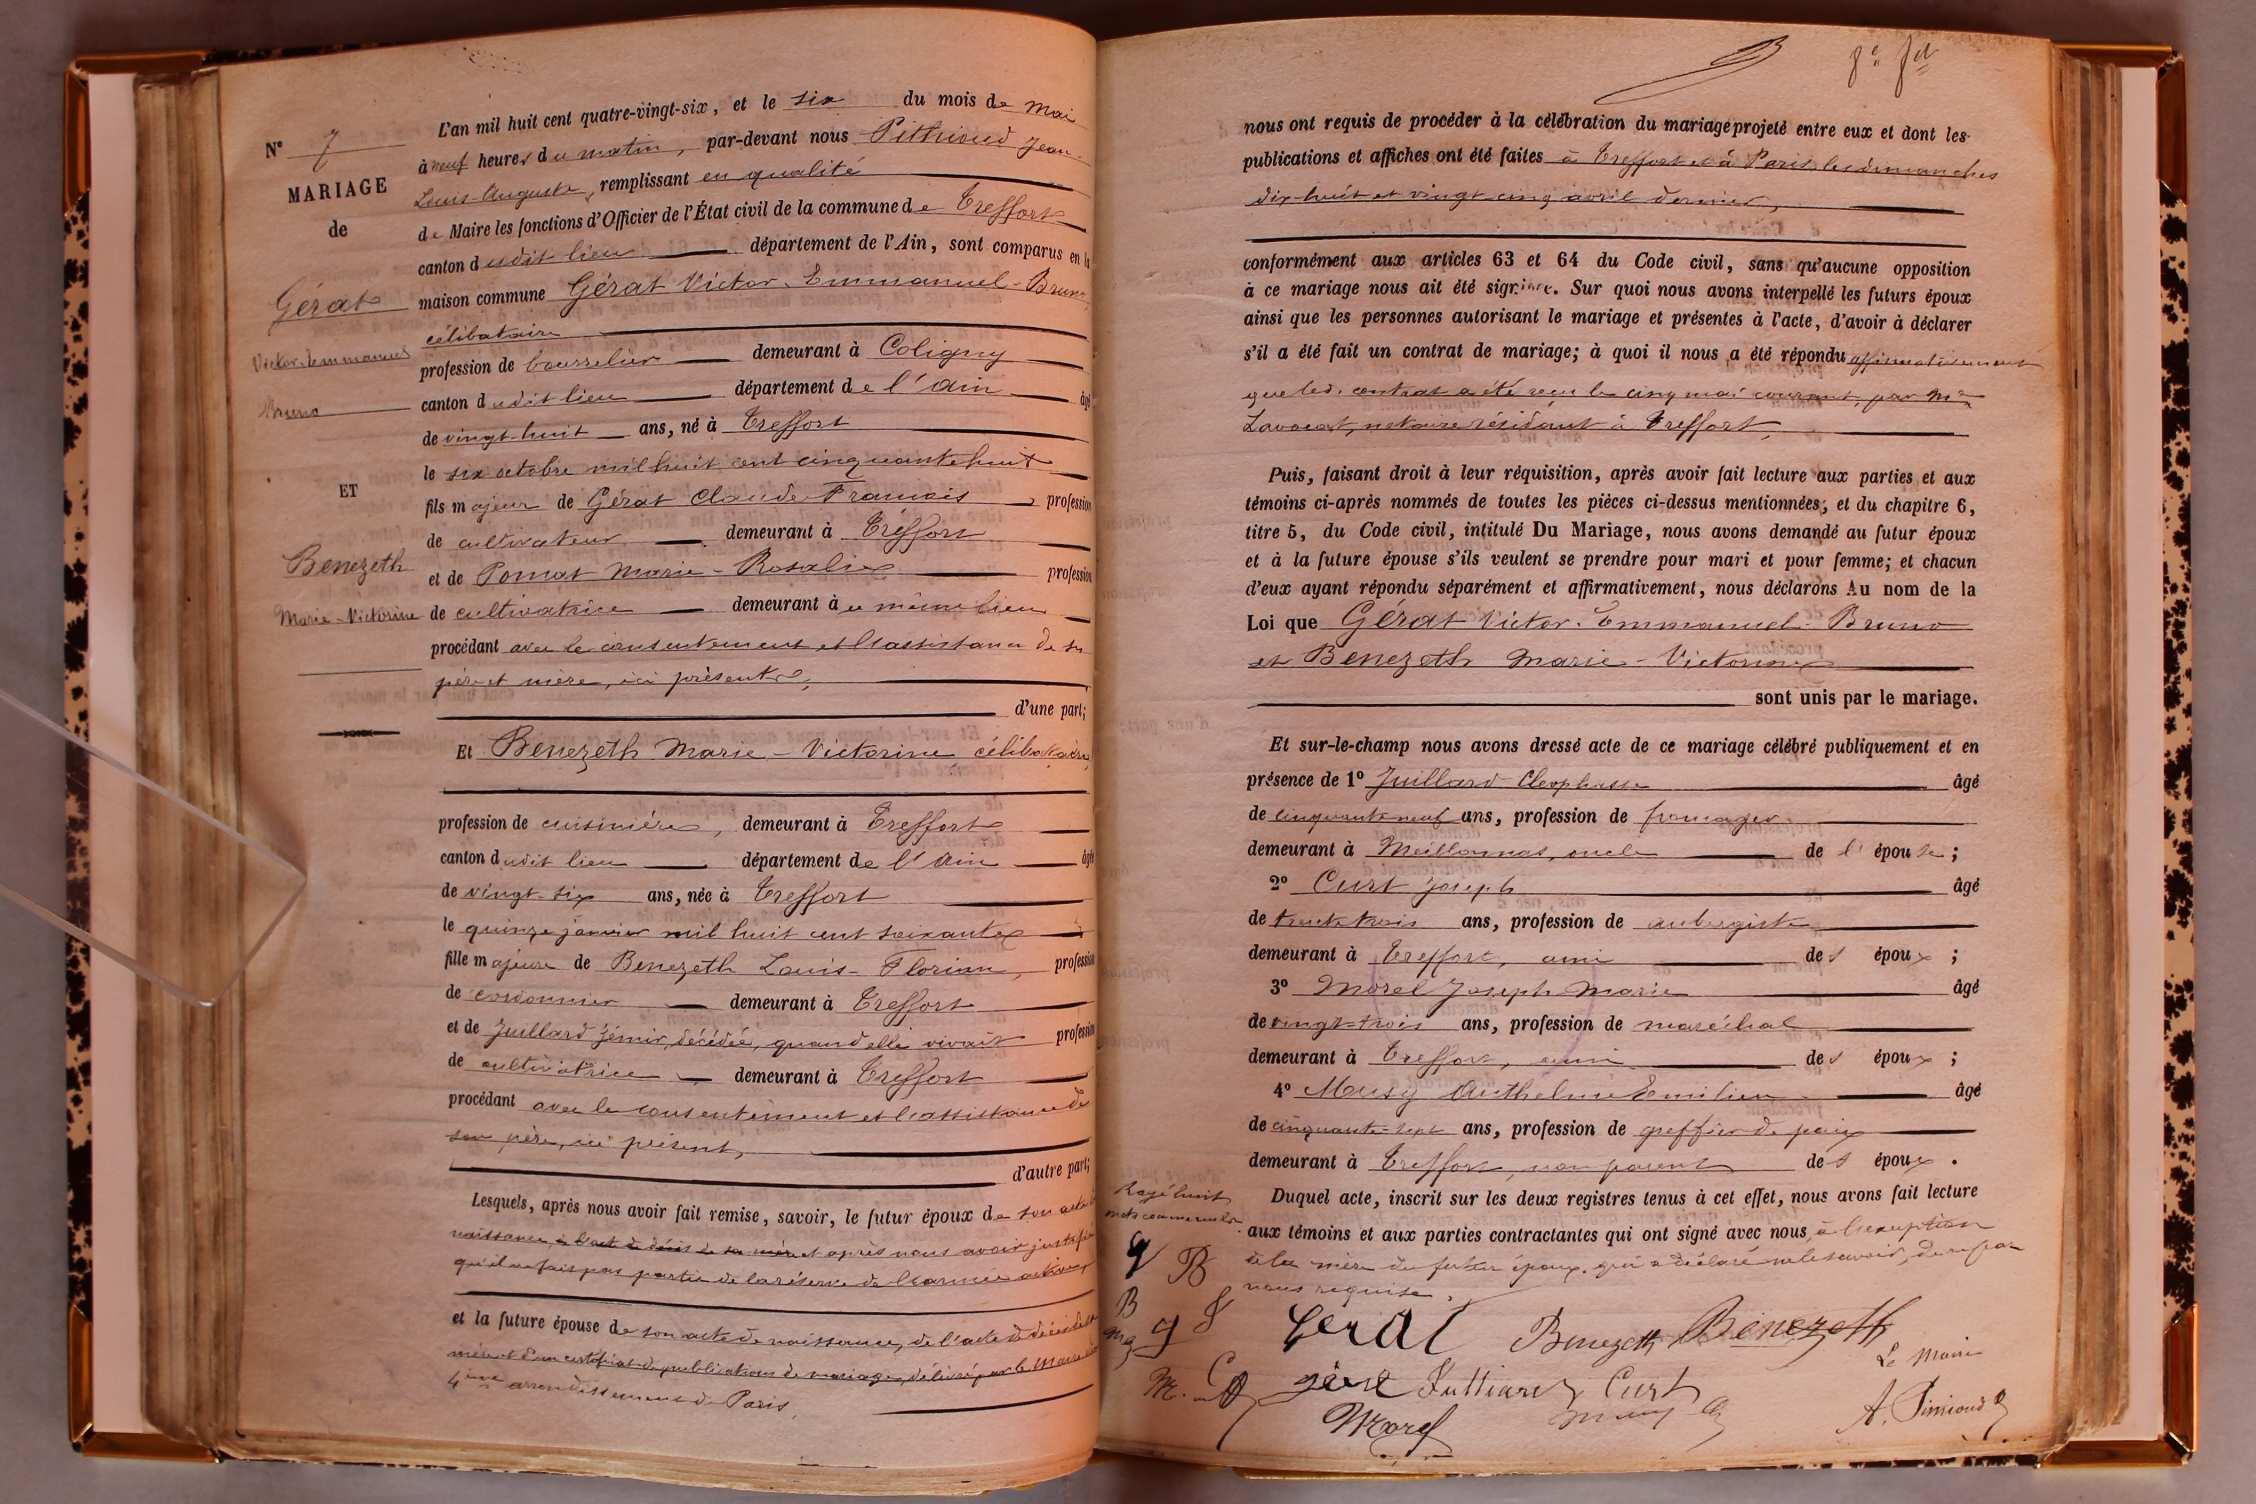 N° 7
MARIAGE
de
Gérat
Victor-Emmanuel
Bruno
ET
Benezeth
Marie-Victorine
L'an mil huit cent quatre-vingt-six, et le six du mois de mai
à neuf heures du matin, par-devant nous Pithioud Jean-
Louis-Auguste, remplissant en qualité
de Maire les fonctions d'Officier de l'État civil de la commune de Treffort
canton dudit lieu département de l'Ain, sont comparus en la
maison commune Gérat Victor-Emmanuel-Bruno,
célibataire
profession de bourrelier demeurant à Coligny
canton dudit lieu département de l'Ain âgé
de vingt-huit ans, né à Treffort
le six octobre mil huit cent cinquante huit
fils majeur de Gérat Claude-François profession
de cultivateur demeurant à Treffort
et de Pomat Marie-Rosalie profession
de cultivatrice demeurant à u même lieu
procédant avec le consentement et l'assistance de ses
père et mère, ici présents,
d'une part;
Et Benezeth Marie-Victorine, célibataire,
profession de cuisinière, demeurant à Treffort
canton dudit lieu département de l'Ain âgée
de vingt-six ans, née à Treffort
le quinze janvier mil huit cent soixante
fille majeure de Benezeth Louis-Florian, profession
de cordonnier demeurant à Treffort
et de Juillard Zémir, décédée, quand elle vivait profession
de cultivatrice demeurant à Treffort
procédant avec le consentement et l'assistance de
son père, ici présent,
d'autre part;
Lesquels, après nous avoir fait remise, savoir, le futur époux de son acte de
naissance, à l'acte de décès de sa mère et après nous avoir justifié
qu'il ne fait pas partie de la réserve de l'armée active,
et la future épouse de son acte de naissance, de l'acte de décès de sa
mère et d'un certificat de publications de mariage, délivré par le Maire du
4ème arrondissement de Paris,
nous ont requis de procéder à la célébration du mariage projeté entre eux et dont les
publications et affiches ont été faites à Treffort et à Paris, les dimanches
dix-huit et vingt cinq avril dernier,
conformément aux articles 63 et 64 du Code civil, sans qu'aucune opposition
à ce mariage nous ait été signifiée. Sur quoi nous avons interpellé les futurs époux
ainsi que les personnes autorisant le mariage et présentes à l'acte, d'avoir à déclarer
s'il a été fait un contrat de mariage; à quoi il nous a été répondu affirmativement
que led. contrat a été reçu le cinq mai courant, par Me
Lavocat, notaire résidant à Treffort,
Puis, faisant droit à leur réquisition, après avoir fait lecture aux parties et aux
témoins ci-après nommés de toutes les pièces ci-dessus mentionnées, et du chapitre 6,
titre 5, du Code civil, intitulé Du Mariage, nous avons demandé au futur époux
et à la future épouse s'ils veulent se prendre pour mari et pour femme; et chacun
d'eux ayant répondu séparément et affirmativement, nous déclarons Au nom de la
Loi que Gérat Victor-Emmanuel-Bruno
et Benezeth Marie-Victorine
sont unis par le mariage.
Et sur-le-champ nous avons dressé acte de ce mariage célébré publiquement et en
présence de 1° Juillard Cléophasse âgé
de cinquante neuf ans, profession de fromager
demeurant à Meillonnas, oncle de l'épouse;
2° Curt Joseph âgé
de trente trois ans, profession de aubergiste
demeurant à Treffort, ami des époux;
3° Morel Joseph Marie âgé
de vingt-trois ans, profession de maréchal
demeurant à Treffort, ami des époux;
4° Musy Anthelme Emilien âgé
de cinquante-sept ans, profession de greffier de paix
demeurant à Treffort, non parent des époux.
Duquel acte, inscrit sur les deux registres tenus à cet effet, nous avons fait lecture
aux témoins et aux parties contractantes qui ont signé avec nous, à l'exception
de la mère du futur époux, qui a déclaré ne le savoir, de ce par
nous requise.
Rayé huit
mots comme nuls
Gérat Benezeth Benezeth
Le Maire
Gérat Julliard Curt
Morel